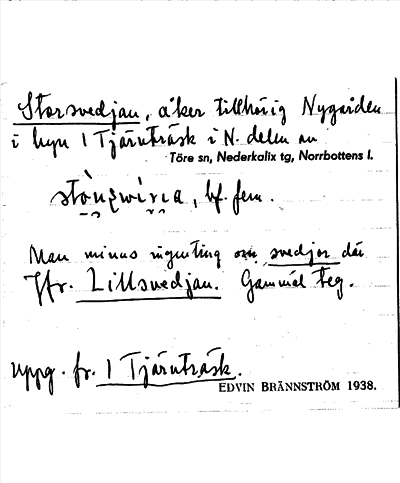 Storsvedjan, åker tillhörig Nygården
i byn 1 Tjärnträsk i N. delen av
Töre sn, Nederkalix tg, Norrbottens l.
bf. fem.
Man minns ingenting om svedjor där
Jfr. Lillsvedjan. Gammal teg.
Uppg. fr. 1 Tjärnträsk.
EDVIN BRÄNNSTRÖM 1938.